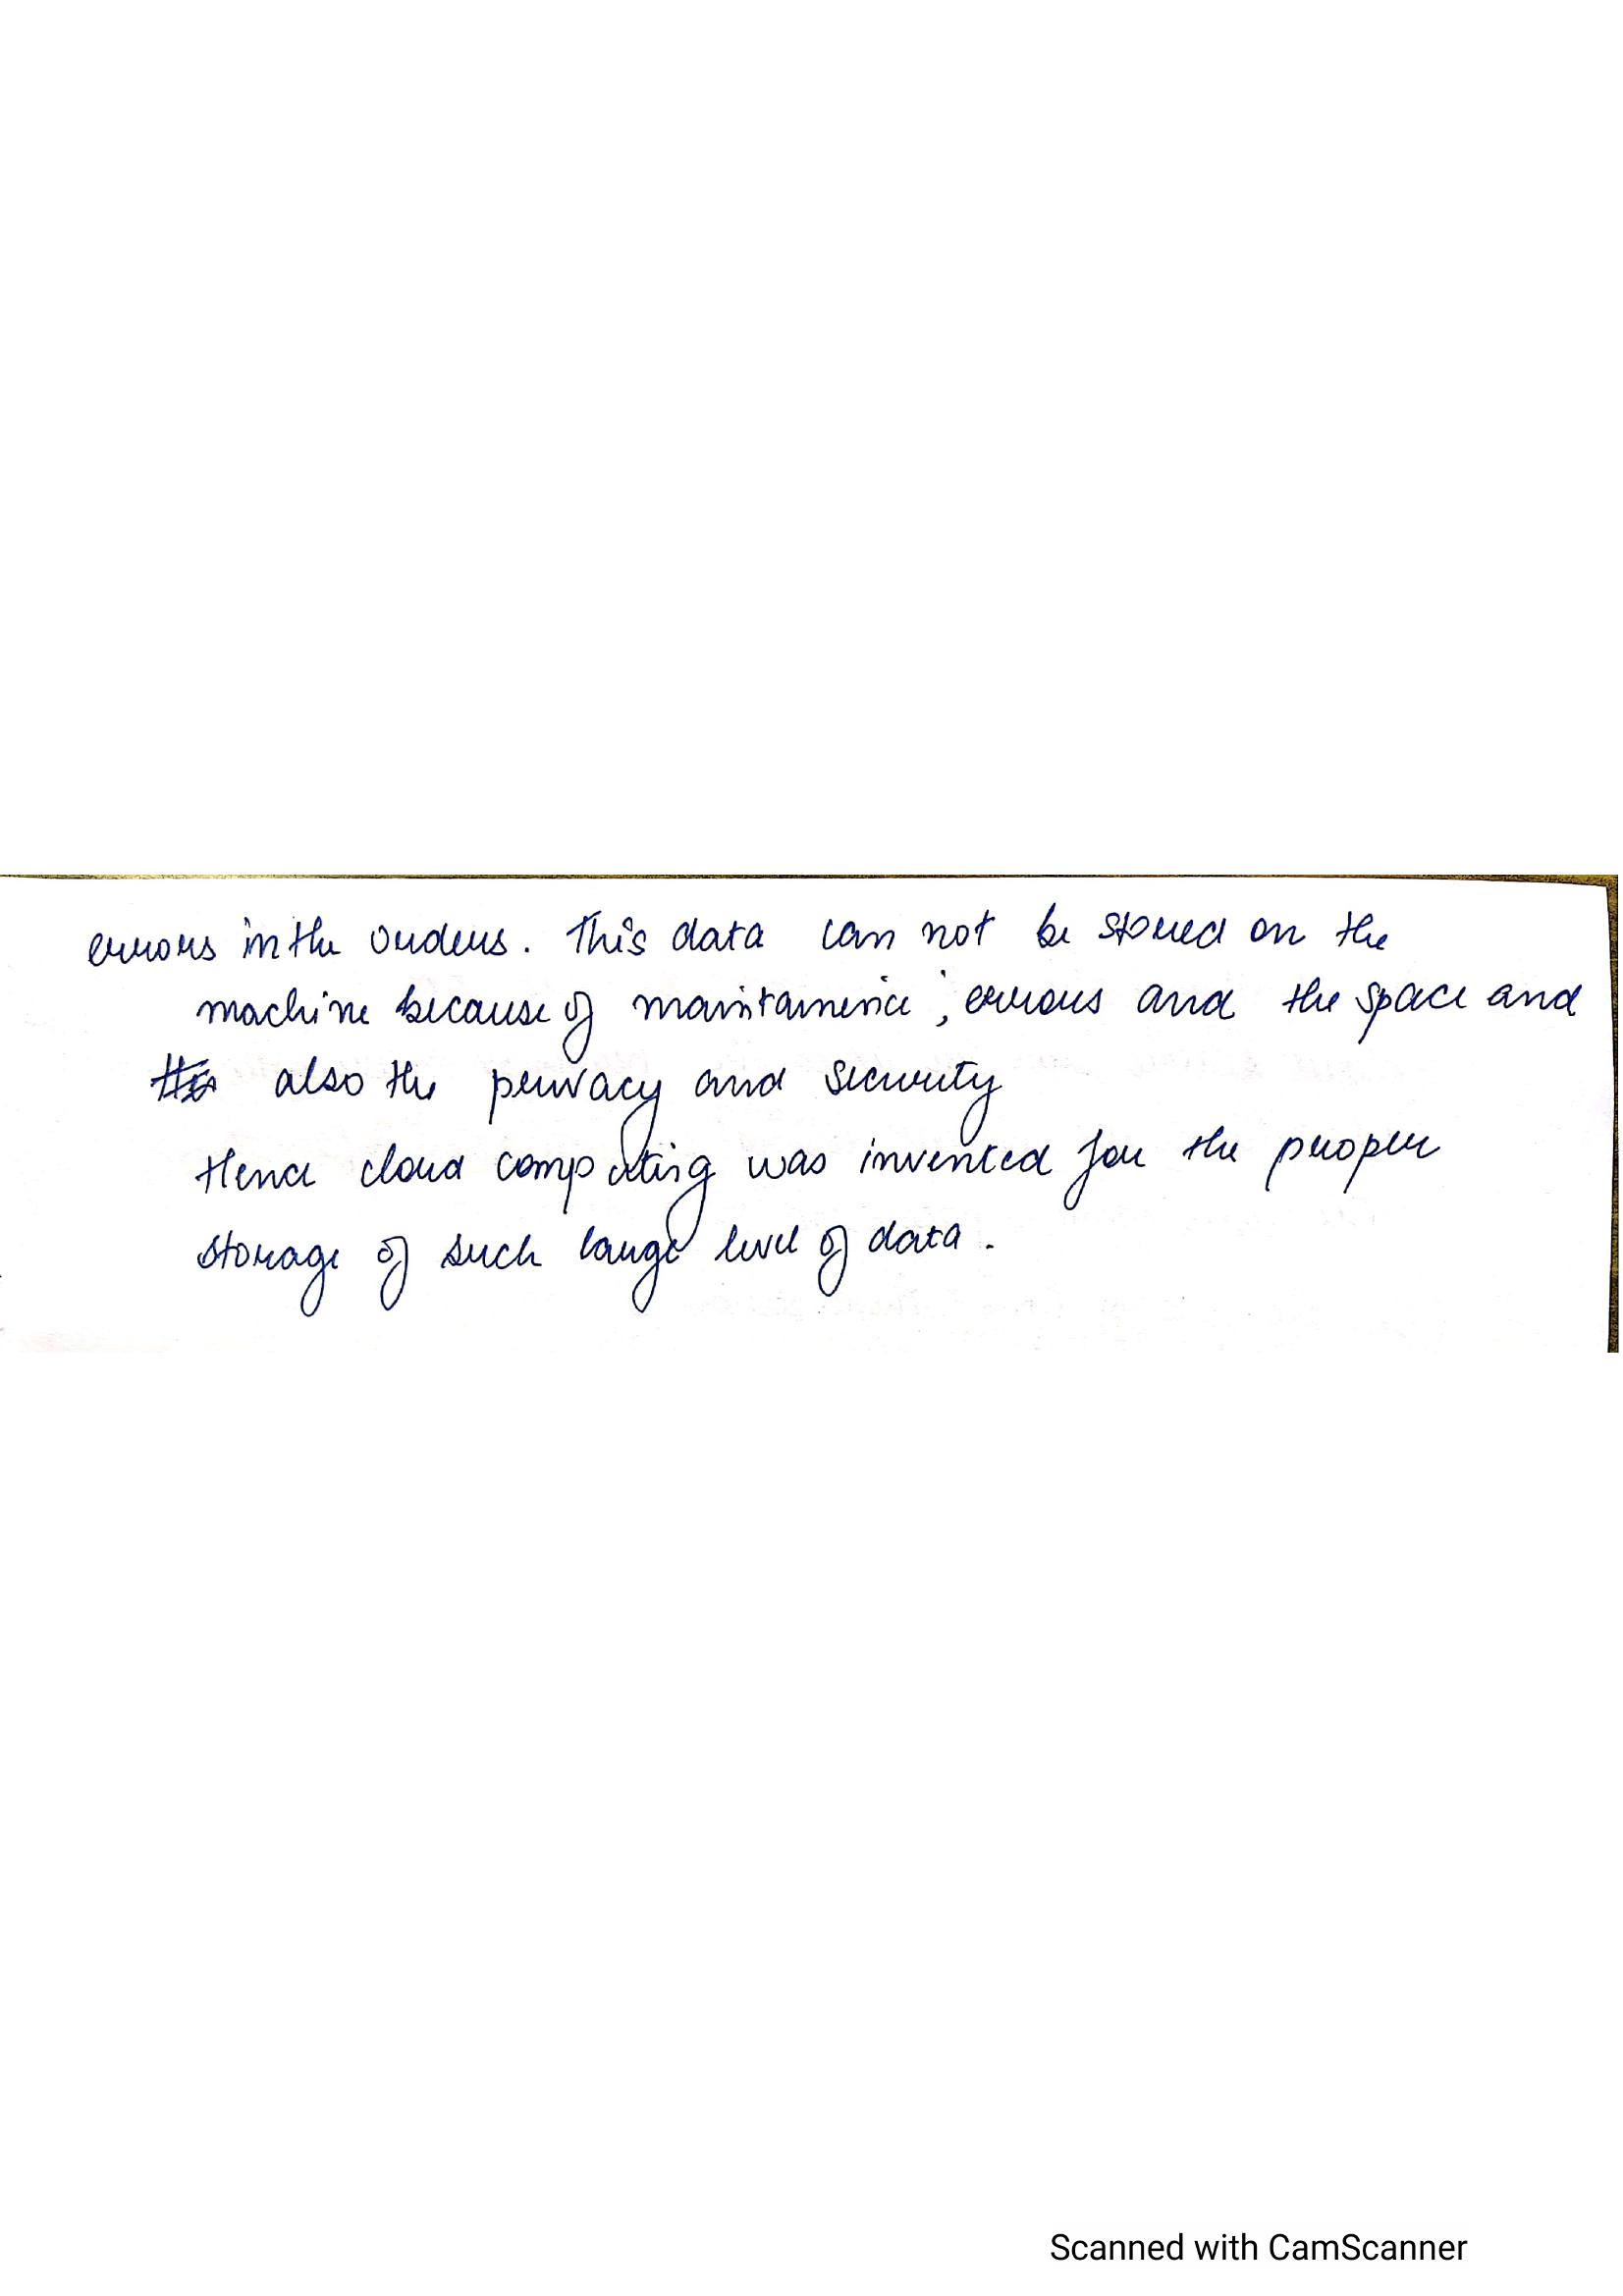 errors in the orders. This data can not be stored on the
machine because of maintainence, errors and the space and
also the privacy and security
Hence cloud computing was invented for the proper
storage of such large level of data.
Scanned with CamScanner